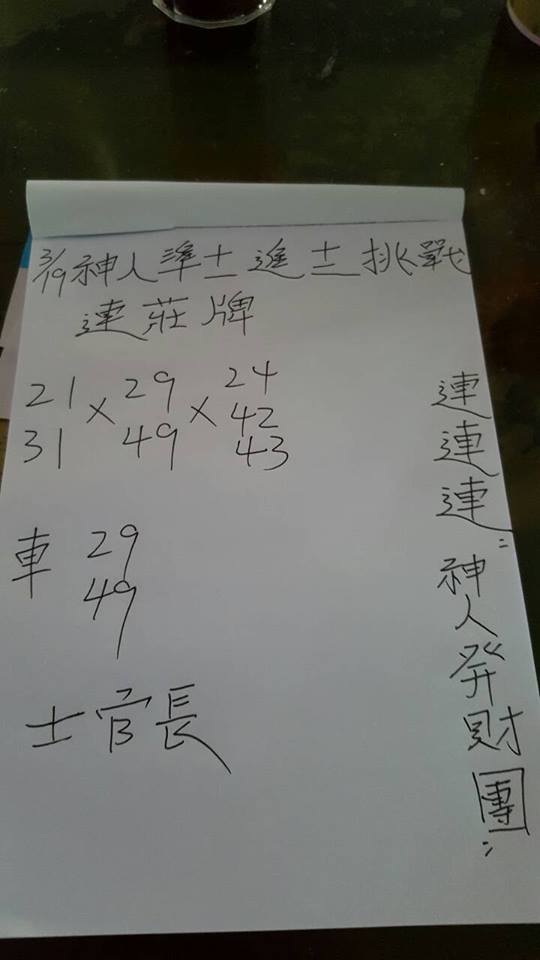 3/19神人準士進士挑戰
連莊牌
21 × 29 × 24
31 49 42
43
車 29
49
士官長
連連連:神人発財團: